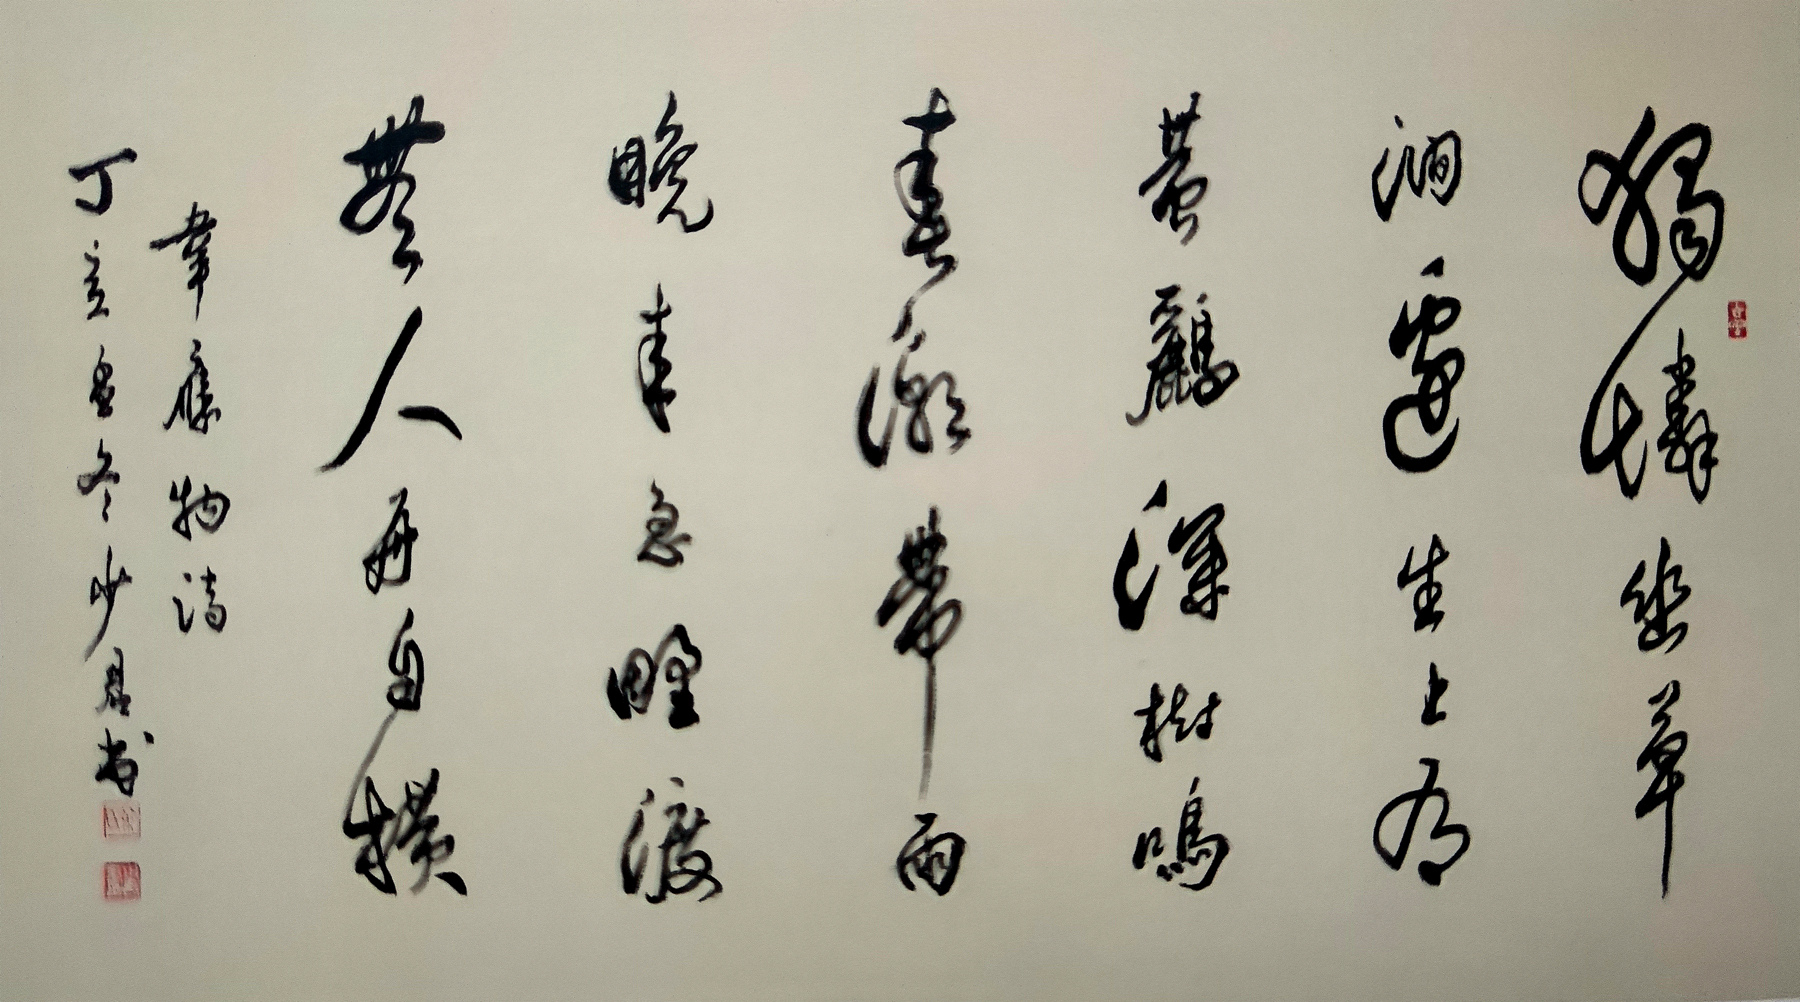 獨憐幽草
澗邊生上有
黃鸝深樹鳴
春潮帶雨
晚來急野渡
無人舟自橫
韋應物詩
丁亥孟冬少君书